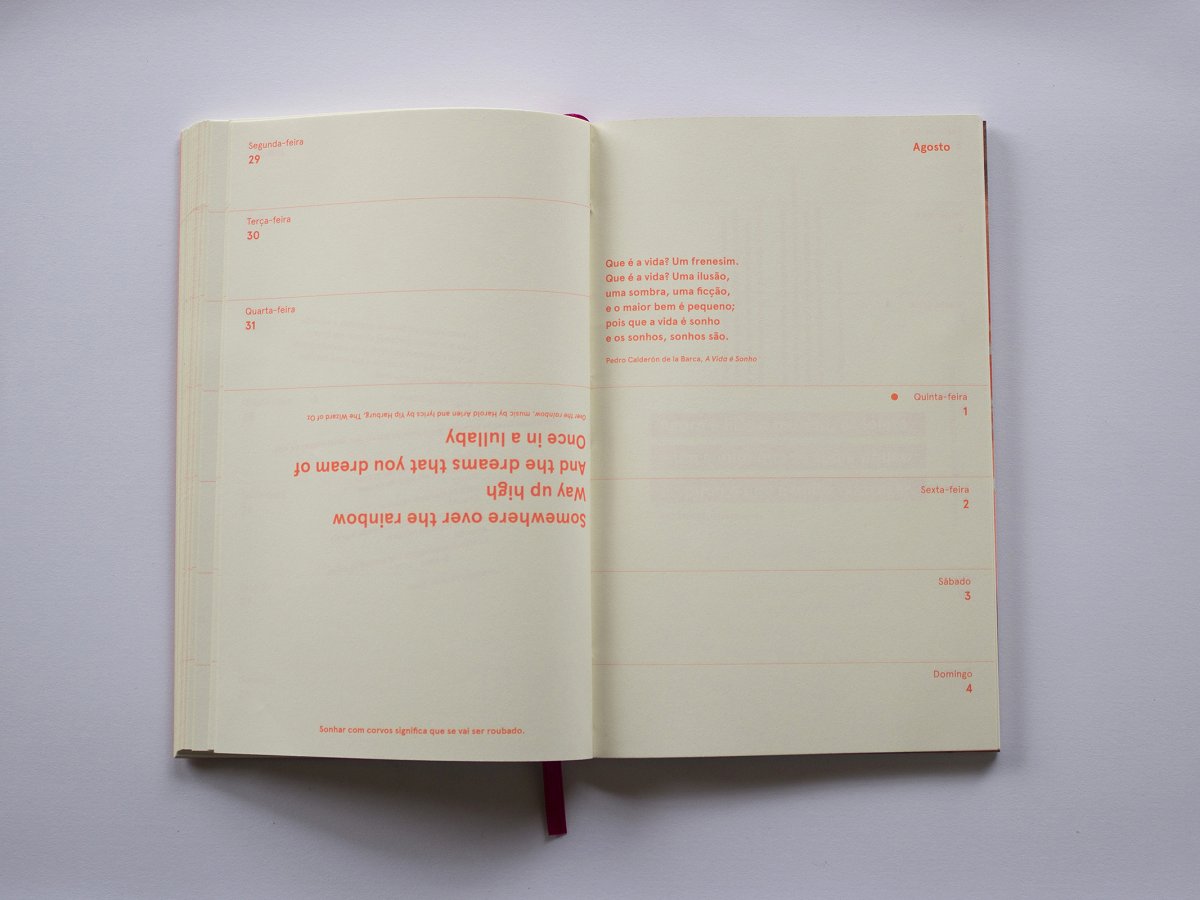 Segunda-feira
29
Terça-feira
30
Quarta-feira
31
Somewhere over the rainbow
Way up high
And the dreams that you dream of
Once in a lullaby
Over the rainbow, music by Harold Arlen and lyrics by Yip Harburg, The Wizard of Oz
Sonhar com corvos significa que se vai ser roubado.
Agosto
Que é a vida? Um frenesim.
Que é a vida? Uma ilusão,
uma sombra, uma ficção,
e o maior bem é pequeno;
pois que a vida é sonho
e os sonhos, sonhos são.
Pedro Calderón de la Barca, A Vida é Sonho
Quinta-feira
1
Sexta-feira
2
Sábado
3
Domingo
4